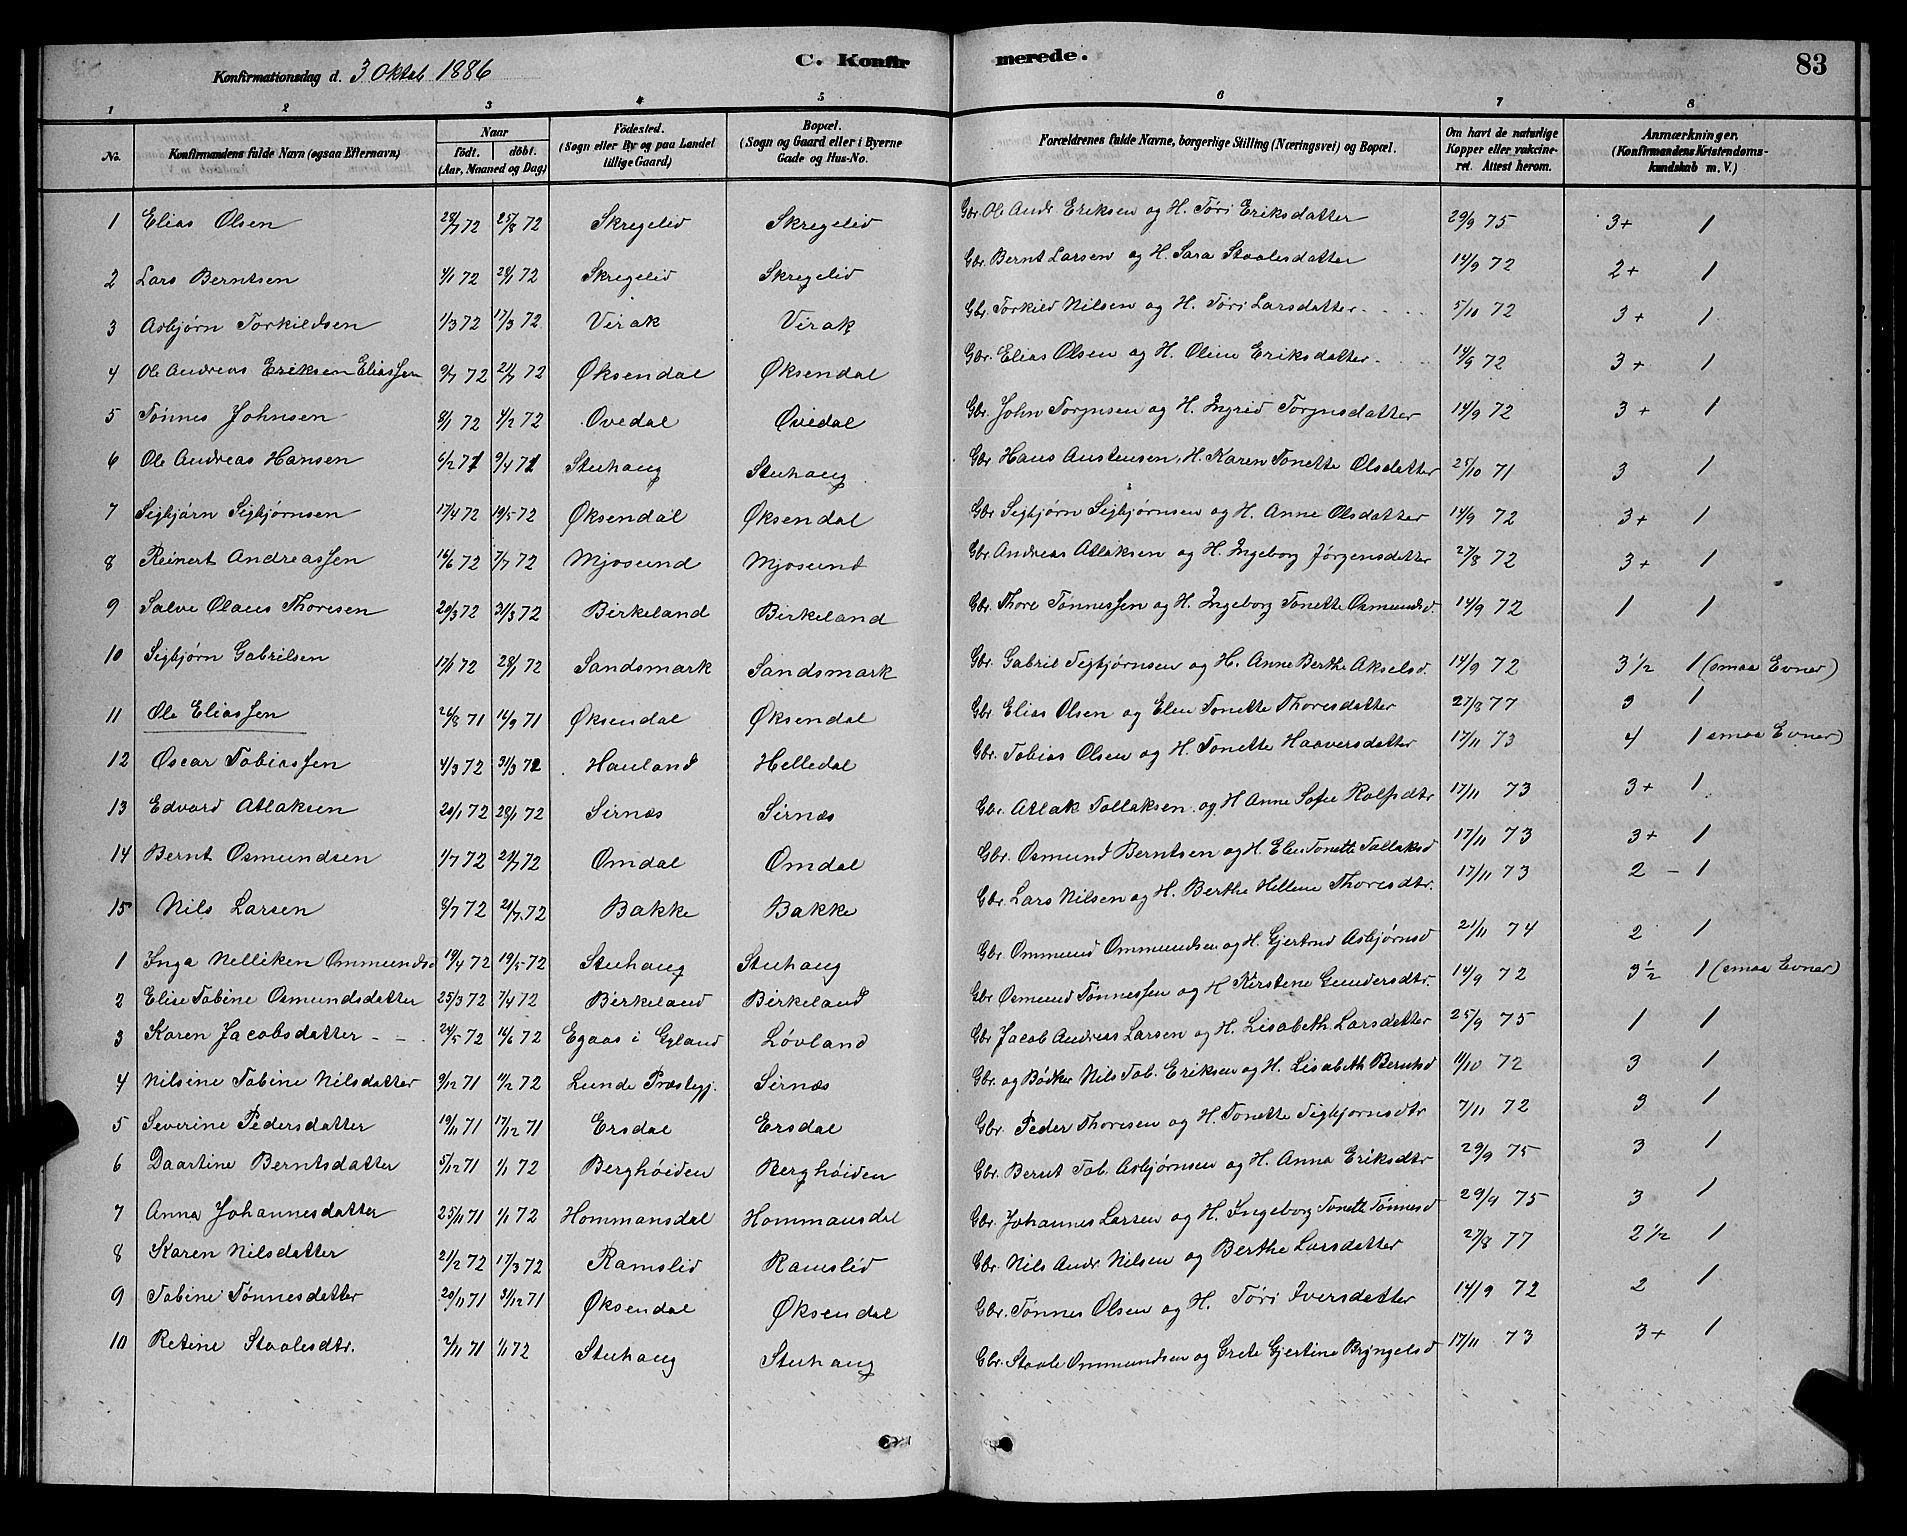 Konfirmationsdag d. 3 Oktob 1886
C. Konfirmerede.
83
1 2 3 4 5 6 7 8
No. Konfirmandens fulde Navn (ogsaa Efternavn) Naar født. døbt. (Aar, Maaned og Dag) Födested. (Sogn eller By og paa Landet tillige Gaard) Bopæl. (Sogn og Gaard eller i Byerne Gade og Hus-No. Forældrenes fulde Navne, borgerlige Stilling (Næringsvei) og Bopæl. Om havt de naturlige Kopper eller vakcineret. Attest herom. Anmærkninger. (Konfirmandens Kristendomskundskab m. V.)
1 Elias Olsen 28/7 72 25/8 72 Skregelid Skregelid Gbr. Ole Andr. Eriksen og H. Töri Eriksdatter 29/9 75 3+ 1
2 Lars Berntsen 4/1 72 28/1 72 Skregelid Skregelid Gbr. Bernt Larsen og H. Sara Staalesdatter 14/9 72 2+ 1
3 Asbjørn Torkildsen 1/3 72 17/3 72 Virak Virak Gbr. Torkild Nilsen og H. Töri Larsdatter 5/10 72 3+ 1
4 Ole Andreas Eriksen Eliassen 9/7 72 21/7 72 Øksendal Øksendal Gbr. Elias Olsen og H. Oline Eriksdatter 14/9 72 3+ 1
5 Tönnes Johnsen 8/1 72 4/2 72 Ovedal Ovedal Gbr. John Torgnsen og H. Ingrid Torgnsdatter 14/9 72 3+ 1
6 Ole Andreas Hansen 6/2 71 9/4 71 Stuhaug Stuhaug Gbr Hans Austensen, H. Karen Tonette Olsdatter 25/10 71 3 1
7 Sigbjørn Sigbjørnsen 17/4 72 19/5 72 Øksendal Øksendal Gbr Sigbjørn Sigbjørnsen og H. Anne Olsdatter 14/9 72 3+ 1
8 Reinert Andreassen 16/6 72 7/7 72 Mjosund Mjosund Gbr. Andreas Atlaksen og H. Ingeborg Jørgensdatter 27/8 72 3+ 1
9 Salve Olaus Thoresen 20/3 72 31/3 72 Birkeland Birkeland Gbr. Thore Tönnessen og H. Ingeborg Tonette Osmundsd. 14/9 72 1 1
10 Sigbjørn Gabrilsen 17/1 72 28/1 72 Sandsmark Sandsmark Gbr. Gabril Sigbjørnsen og H. Anne Berthe Akselsd. 14/9 72 3 1/2 1 (smaa Evner)
11 Ole Eliassen 26/8 71 16/9 71 Øksendal Øksendal Gbr Elias Olsen og Elen Tonette Thoresdatter 27/8 77 3 1
12 Oscar Tobiassen 4/3 72 31/3 72 Hauland Helledal Gbr. Tobias Olsen og H. Tonette Haaversdatter 17/11 73 4 1 smaa Evner)
13 Edvard Atlaksen 20/1 72 28/1 72 Sirnæs Sirnæs Gbr. Atlak Tollaksen og H Anne Sofie Rolfsdtr 17/11 73 3+ 1
14 Bernt Osmundsen 1/7 72 21/7 72 Omdal Omdal Gbr. Osmund Berntsen og H. Elen Tonette Tollaksd 17/11 73 3+ 1
15 Nils Larsen 8/7 72 21/7 72 Bakke Bakke Gbr. Lars Nilsen og H. Berthe Hellene Thoresdtr. 17/11 73 2 - 1
1 Inga Nelliken Ommundsd 19/4 72 19/5 72 Stuhaug Stuhaug Gbr. Ommund Ommundsen og H. Gjertrud Asbjørnsd 21/11 74 2 1
2 Elise Tobine Osmundsdatter 25/3 72 7/4 72 Birkeland Birkeland Gbr Osmund Tönnessen og H Kirstene Gundersdtr. 14/9 72 3 1/2 1 (smaa Evner)
3 Karen Jacobsdatter - - 24/5 72 16/6 72 Egaas i Gyland Lóvland Gbr Jacob Andreas Larsen og H. Lisabeth Larsdatter 25/9 75 1 1
4 Nilsine Tobine Nilsdatter 9/12 71 11/2 72 Lunde Præstegj. Sirnæs Gbr. og Bödker Nils Tob. Eriksen og H. Lisabeth Berntsd 11/10 72 3 1
5 Severine Pedersdatter 19/11 71 17/12 71 Ersdal Ersdal Gbr. Peder Thoresen og H. Tonette Sigbjornsdtr 7/11 72 3 1
6 Daartine Berntsdatter 5/12 71 1/1 72 Berghöiden Berghöiden Gbr. Bernt Tob. Asbjørnsen og H. Anna Eriksdtr 29/9 75 3 1
7 Anna Johannesdatter 25/11 71 1/1 72 Hommansdal Hommansdal Gbr. Johannes Larsen og H. Ingeborg Tonette Tönnesd 29/9 75 3 1
8 Karen Nilsdatter 21/2 72 17/3 72 Ramslid Ramslid Gbr. Nils Andr. Nilsen og Berthe Larsdatter 27/8 77 2 1/2 1
9 Tobine Tönnesdatter 20/11 71 31/12 71 Øksendal Øksendal Gbr. Tönnes Olsen og H. Töri Iversdatter 14/9 72 2 1
10 Retine Staalesdtr. 2/11 71 1/1 72 Stuhaug Stuhaug Gbr. Staale Ommundsen og Grete Gjertine Bryngelsd 17/11 73 3+ 1